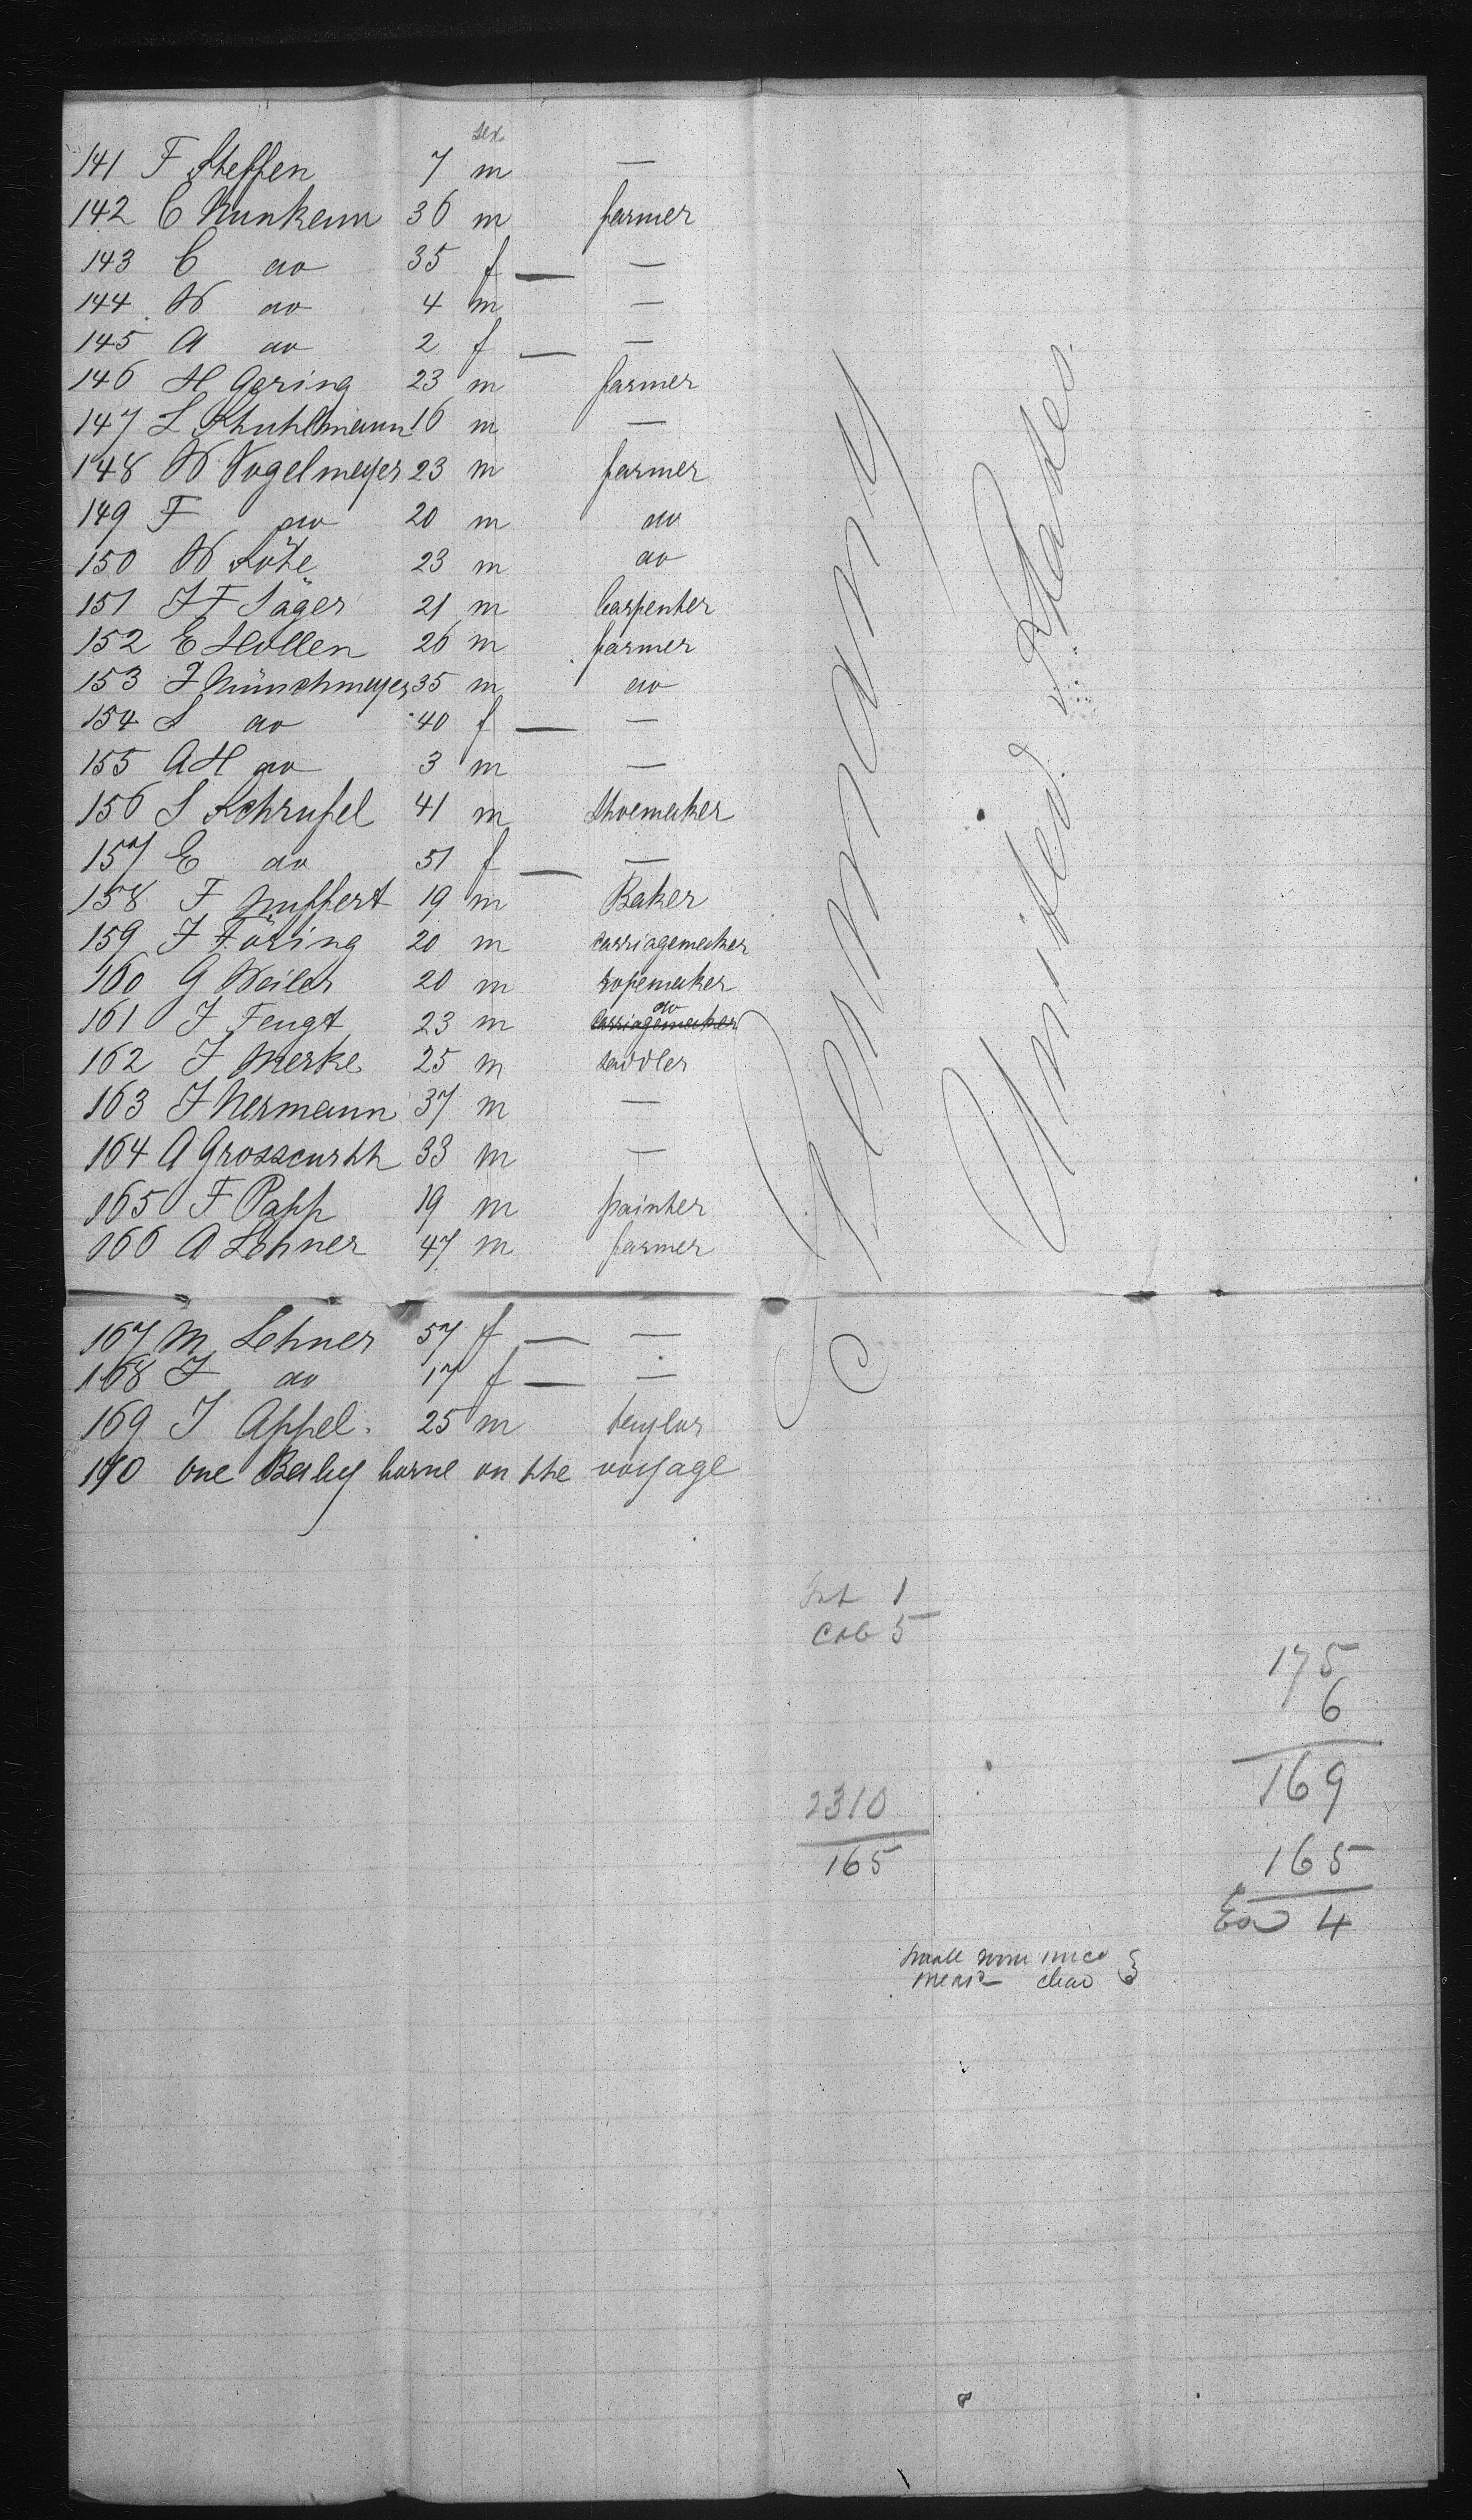 sex
141 F Steffen 7 m —
142 C Nunkenn 36 m farmer
143 C do 35 f — —
144 W do 4 m —
145 A do 2 f — —
146 H Gering 23 m farmer
147 L Stuhlmann 16 m —
148 W Vogelmeyer 23 m farmer
149 F do 20 m do
150 W Köte 23 m do
151 J F Jäger 21 m Carpenter
152 E Hollen 26 m farmer
153 J Münchmeyer 35 m do
154 L do 40 f — —
155 A H do 3 m —
156 S Schrufel 41 m Shoemaker
157 E do 51 f — —
158 F Muffert 19 m Baker
159 J Föring 20 m carriagemaker
160 G Weiler 20 m ropemaker
161 J Fengt 23 m carriagemaker do
162 J Merke 25 m saddler
163 J Hermann 37 m —
164 A Grosscurth 33 m —
165 F Papp 19 m painter
166 A Lehner 47 m farmer
167 M Lehner 57 f — —
168 J do 17 f — —
169 J Appel. 25 m taylor
170 one Baby borne on the voyage
Germany
United States.
Int 1
Cab 5
2310
165
175
6
169
165
4